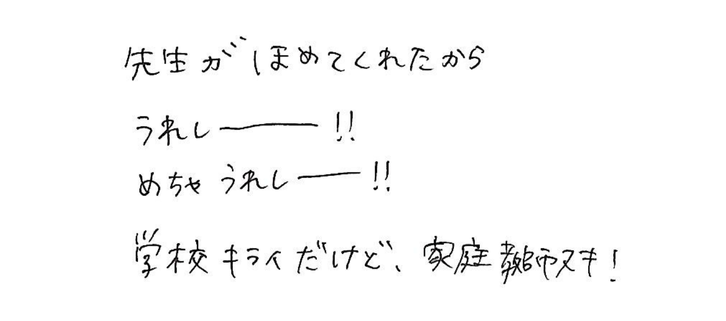 先生がほめてくれたから
うれしー!!
めちゃうれしー!!
学校キライだけど、家庭教師スキ!